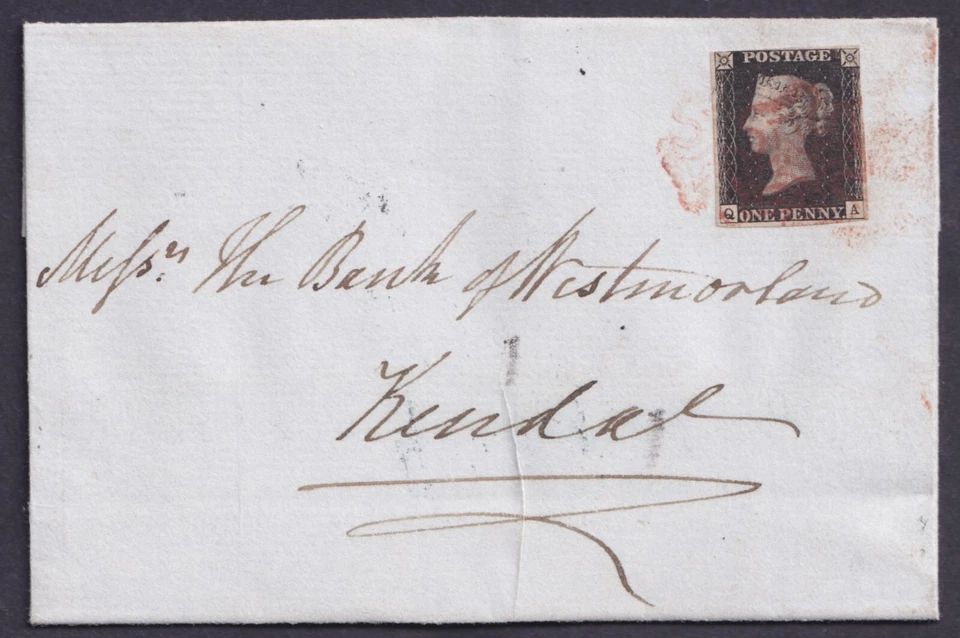 POSTAGE
Q ONE PENNY. A
Messrs The Bank of Westmorland
Kendal